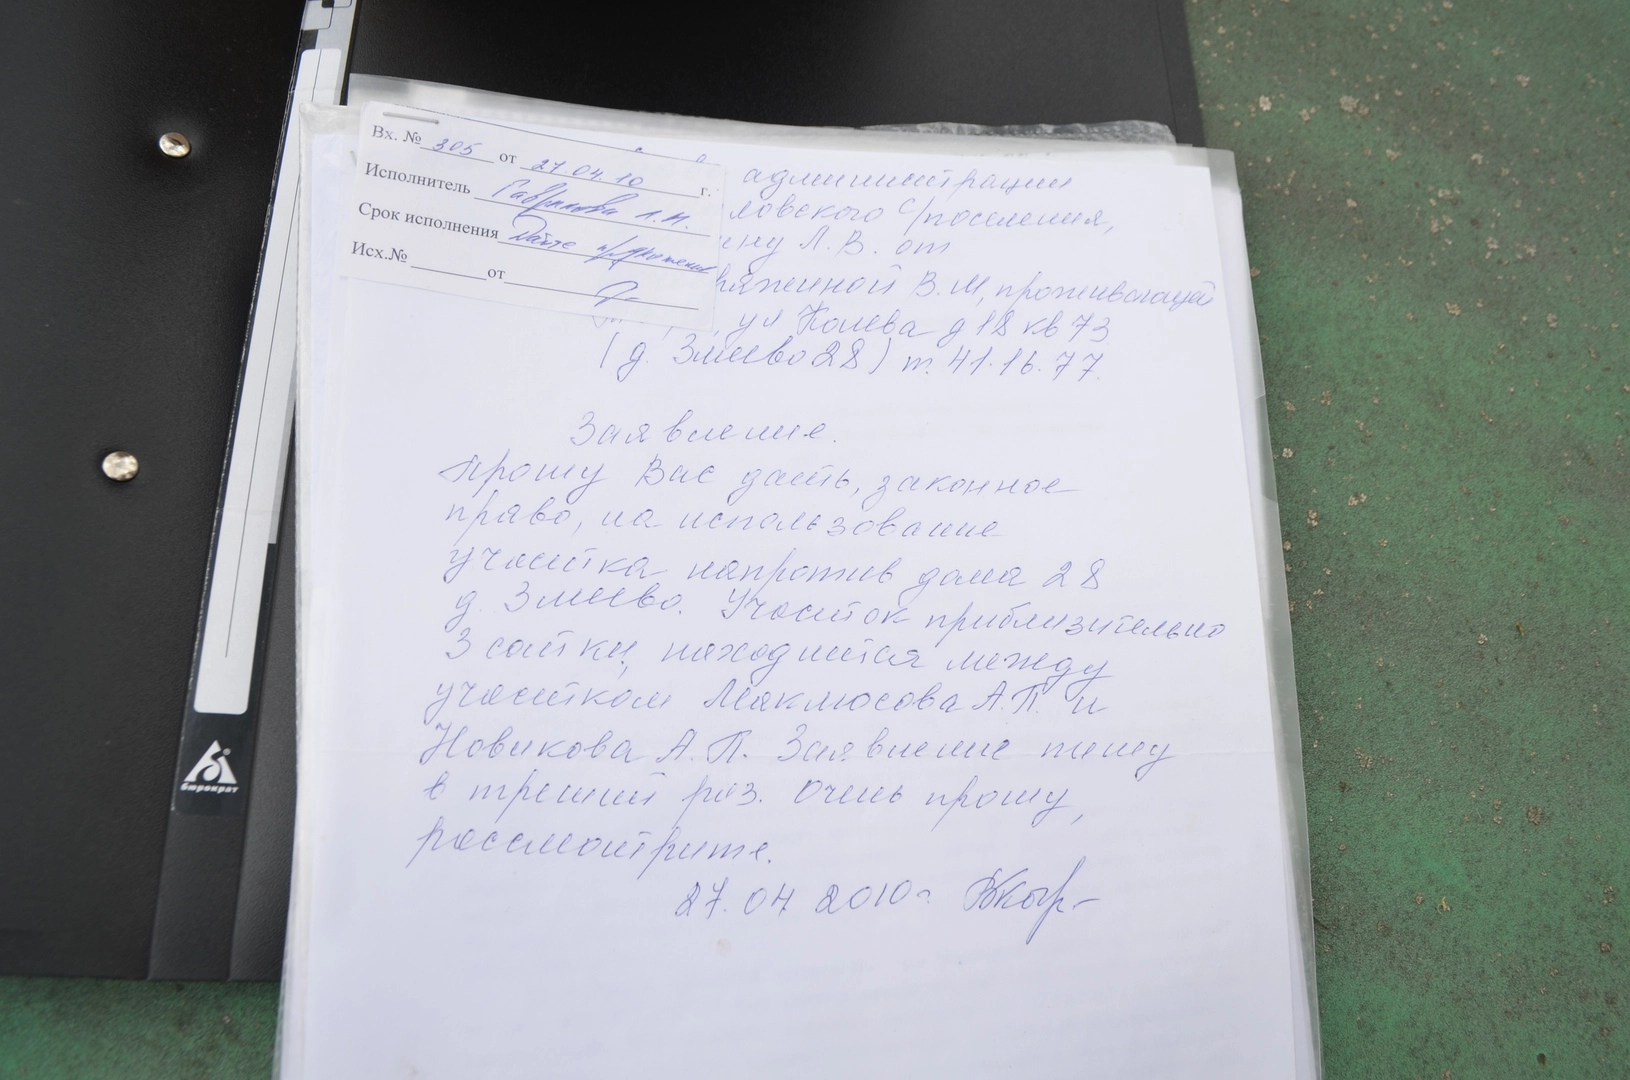 Вх. № 305 от 27.04.10 г.
Исполнитель Гаврилова Л.Н.
Срок исполнения Дайте предложения
Исх.№ от
администрации
ловского с/поселения,
ину Л.В. от
ряженной В.М, проживающей
ул Конева д 18 кв 73
(д. Змеево 28) т. 41.16.77.
Заявление.
прошу Вас дать, законное
право, на использование
участка напротив дома 28
д. Змеево. Участок приблизительно
3 сотки, находится между
участком А.П. и
Новикова А.П. Заявление пишу
в третий раз. Очень прошу,
рассмотрите.
27.04 2010г.
бюрократ